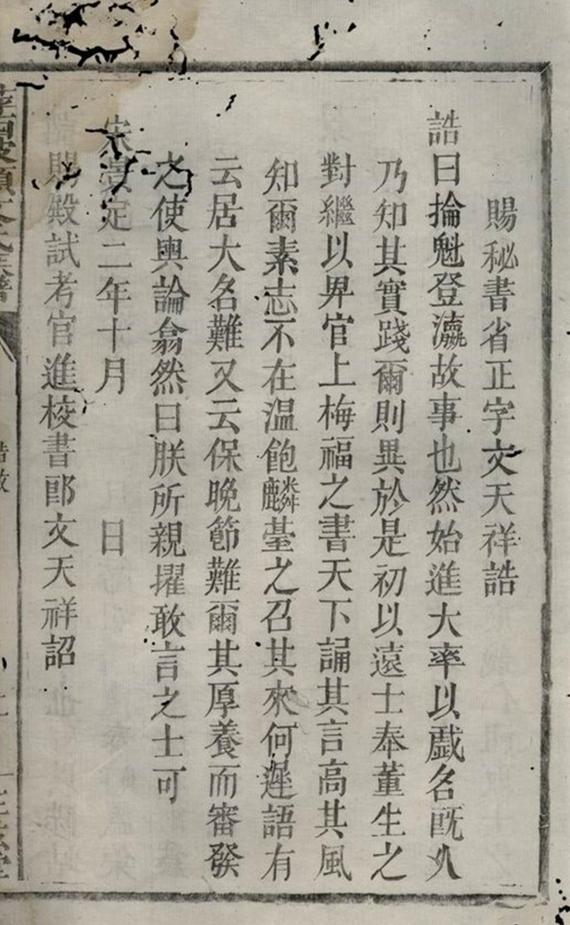 賜秘書省正字文天祥誥
誥曰掄魁登瀛故事也然始進大率以戲名既久
乃知其實踐爾則異於是初以遠士奉董生之
對繼以畀官上梅福之書天下誦其言高其風
知爾素志不在溫飽麟臺之召其來何遲語有
云居大名難又云保晚節難爾其厚養而審發
之使輿論翕然曰朕所親擢敢言之士可
宋景定二年十月 日
賜殿試考官進校書郎文天祥詔